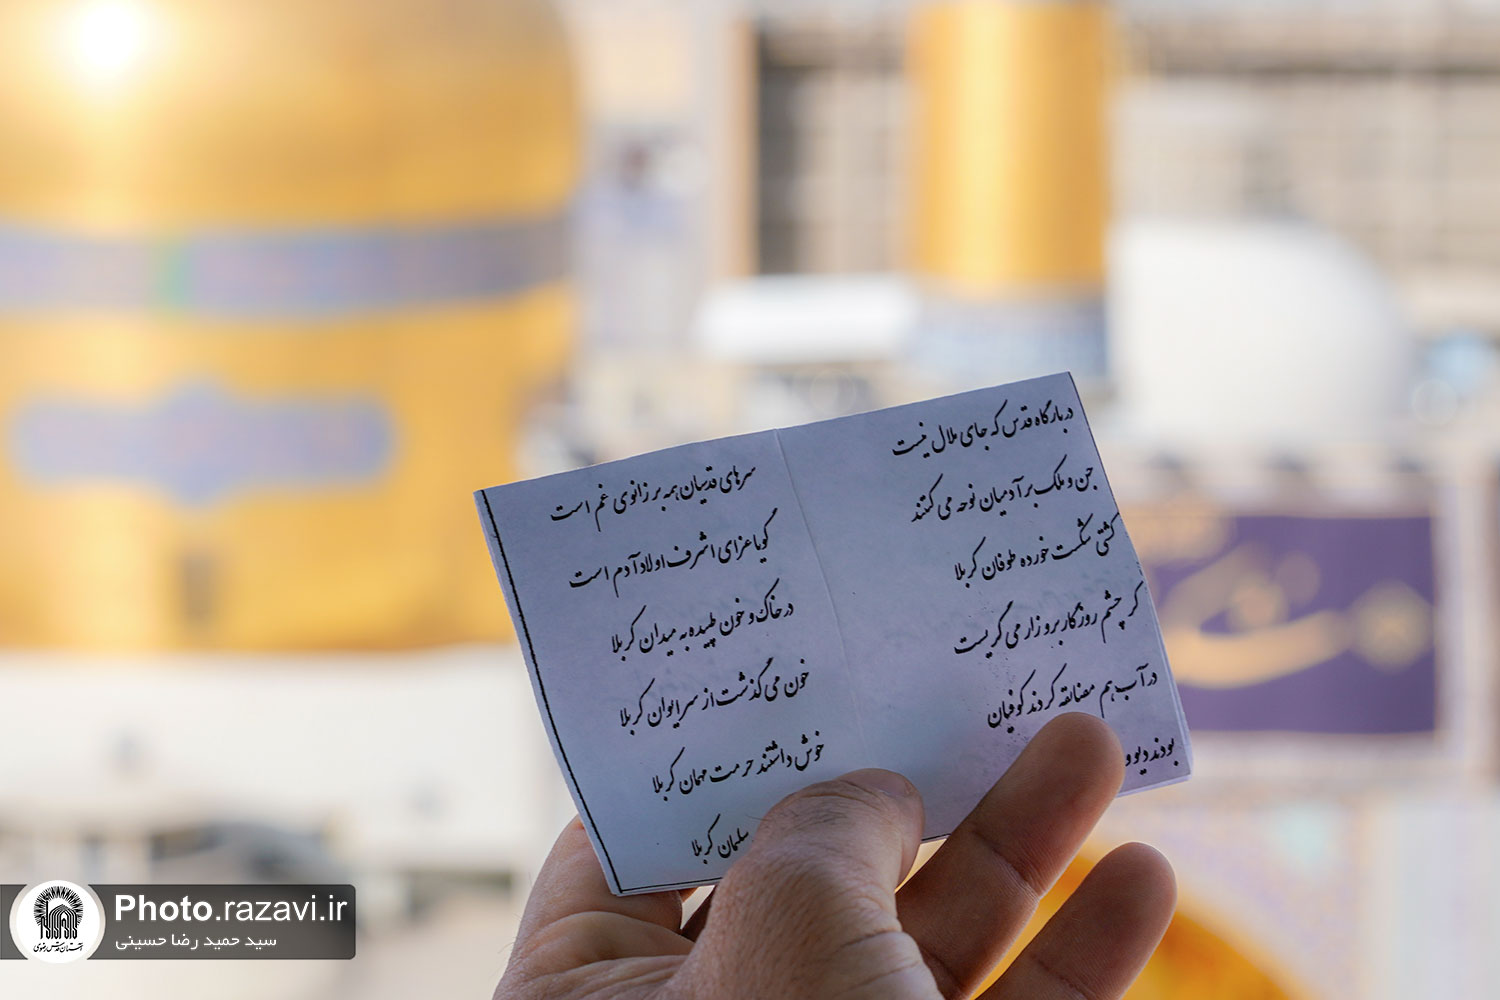 در بارگاه قدس که جای ملال نیست
سرهای قدسیان همه بر زانوی غم است
جن و ملک بر آدمیان نوحه می کنند
گویا عزای اشرف اولاد آدم است
کشتی شکست خورده طوفان کربلا
در خاک و خون طپیده به میدان کربلا
کز چشم روزگار برو زار می گریست
خون می گذشت از سر ایوان کربلا
در آب هم مضائقه کردند کوفیان
خوش داشتند حرمت مهمان کربلا
بودند دیو و
سلیمان کربلا
Photo.razavi.ir
سید حمید رضا حسینی
آستان قدس رضوی